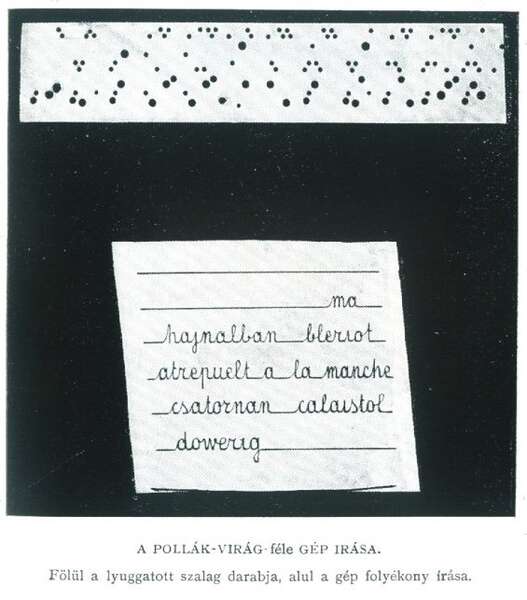 ma
hajnalban bleriot
atrepuelt a la manche
csatornan calaistol
dowerig
A POLLÁK-VIRÁG-féle GÉP IRÁSA.
Fölül a lyuggatott szalag darabja, alul a gép folyékony írása.